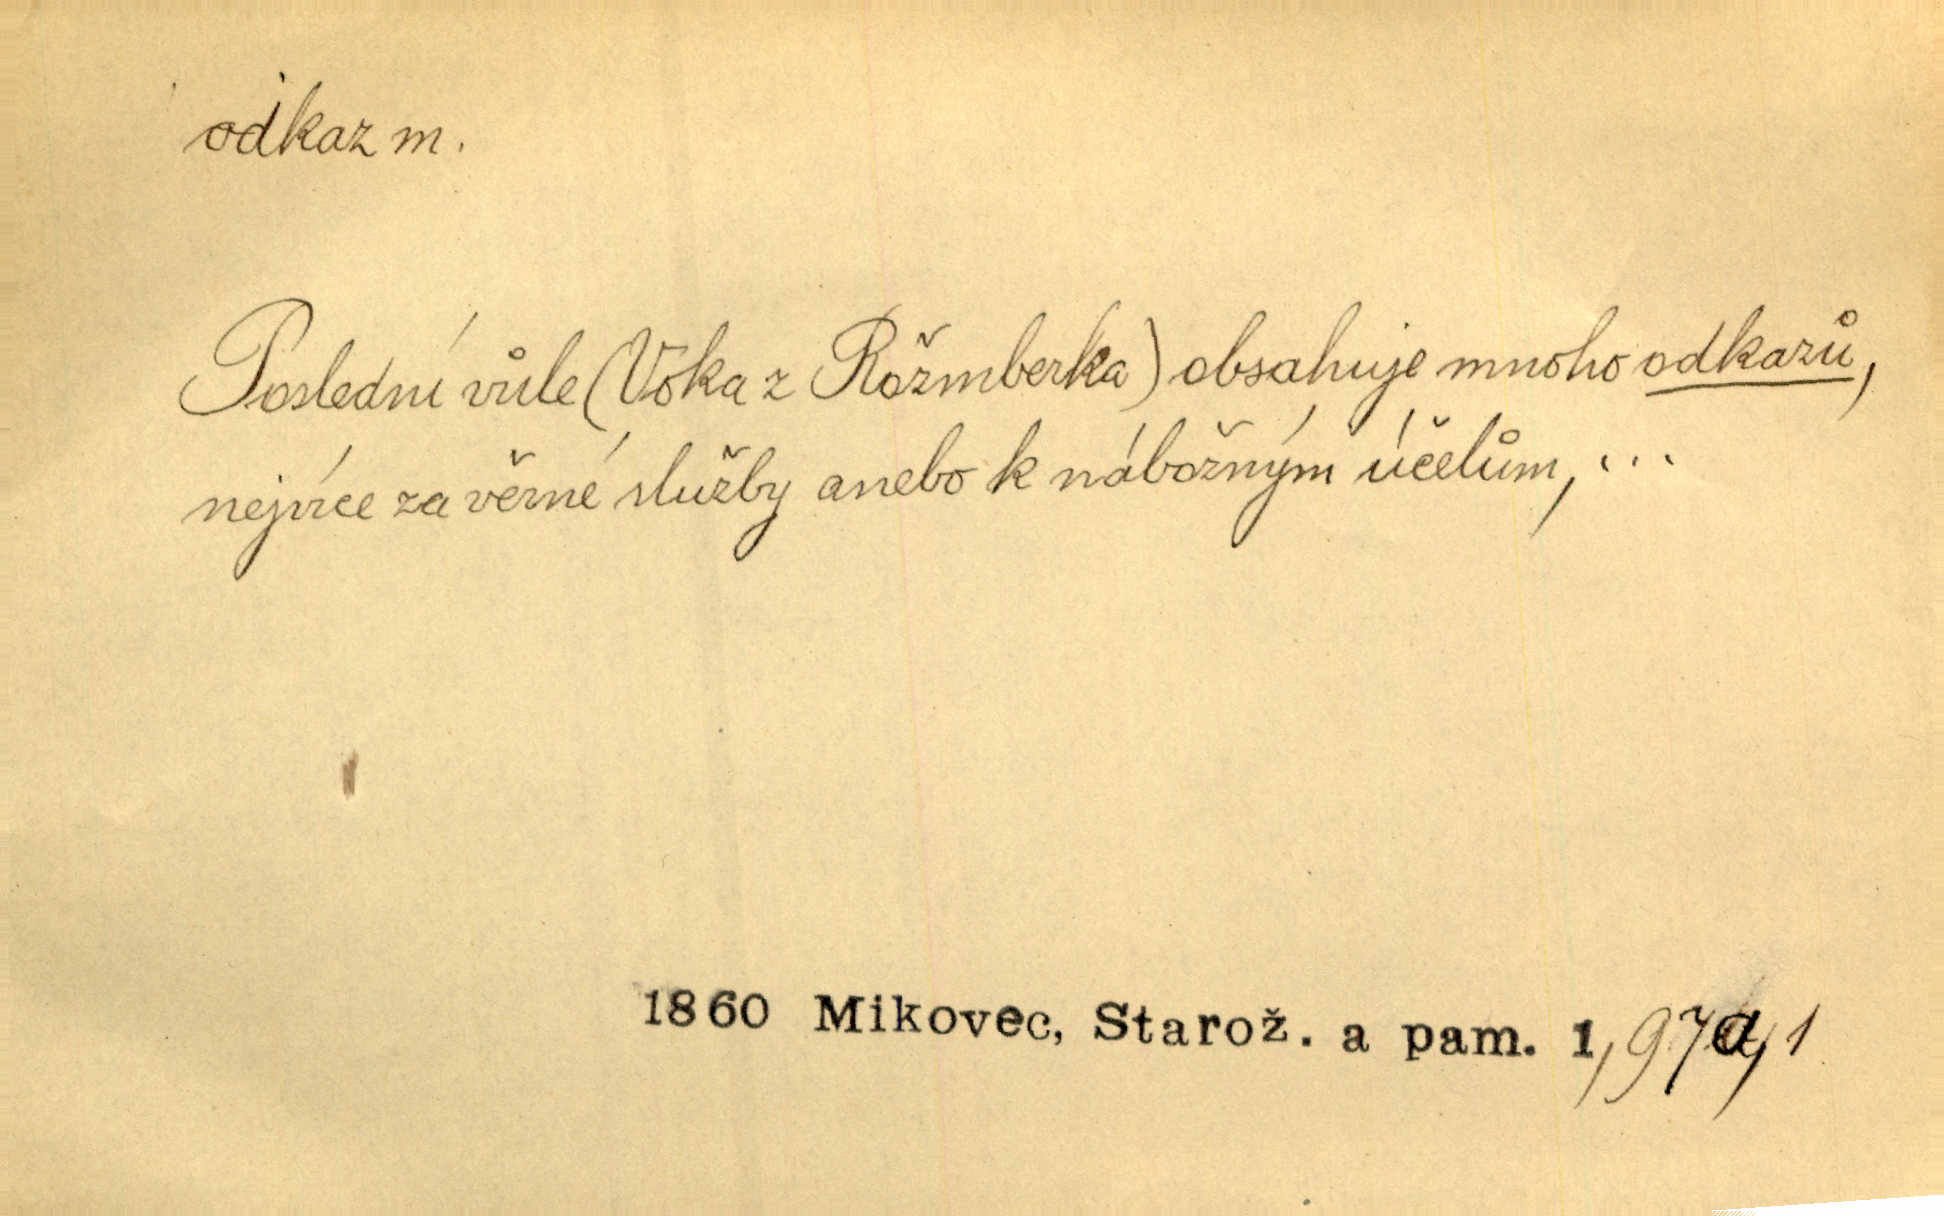 odkaz m.
Poslední vůle (Voka z Rožmberka) obsahuje mnoho odkazů,
nejvíce za věrné služby anebo k nábožným účelům, ...
1860 Mikovec, Starož. a pam. 1, 97a, 1